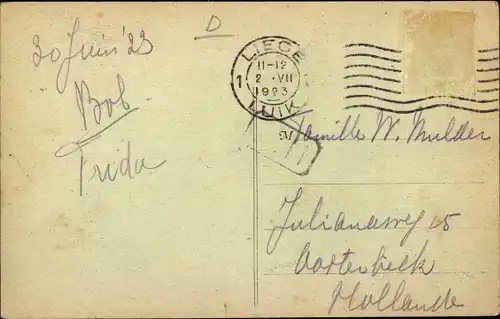 D
30 Juin '23
Bob
Frida
LIEGE
1
11-12
2 · VII
1923
LUIK
Familie W. Mulder
Julianaweg 15
Oosterbeek
Hollande